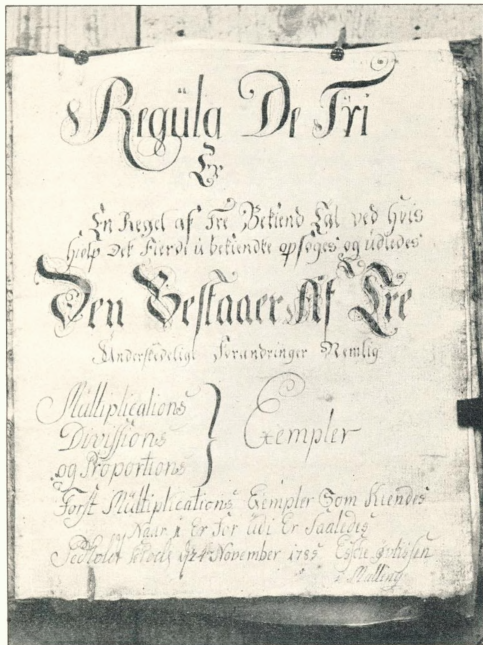 Regula De Tri
Er
En Regel af Tre Bekiend Tal ved Hvis
hielp Det Fierde ü bekiendte opsøges og üdledes
Den Bestaaer Af Tre
Underskedelige Forandringer Nemlig
Mültiplications
Divissions
og Proportions
Exempler
Først Mültiplications Exempler Som Kiendes
Naar 1 Er For üdi Er Saaledis
November 1785
i Malling